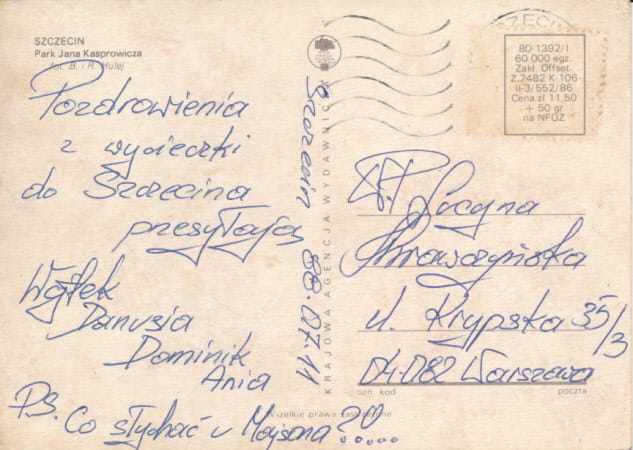 SZCZECIN
Park Jana Kasprowicza
fot. B. i R. Hulej
Pozdrowienia
z wycieczki
do Szczecina
przesyłają
Wojtek
Danusia
Dominik
Ania
PS. Co słychać u Majsona?0.....
KRAJOWA AGENCJA WYDAWNICZA
Szczecin 88.07.11
SZCZECIN
80-1392/I
60 000 egz.
Zakł. Offset
Z. 7482 K-106
II-3/552/86
Cena zł 11,50
+ 50 gr
na NFOZ
Lucyna
ul. Krypska 35/3
04-082 Warszawa
ozn. kod
poczta
Wszelkie prawa zastrzeżone